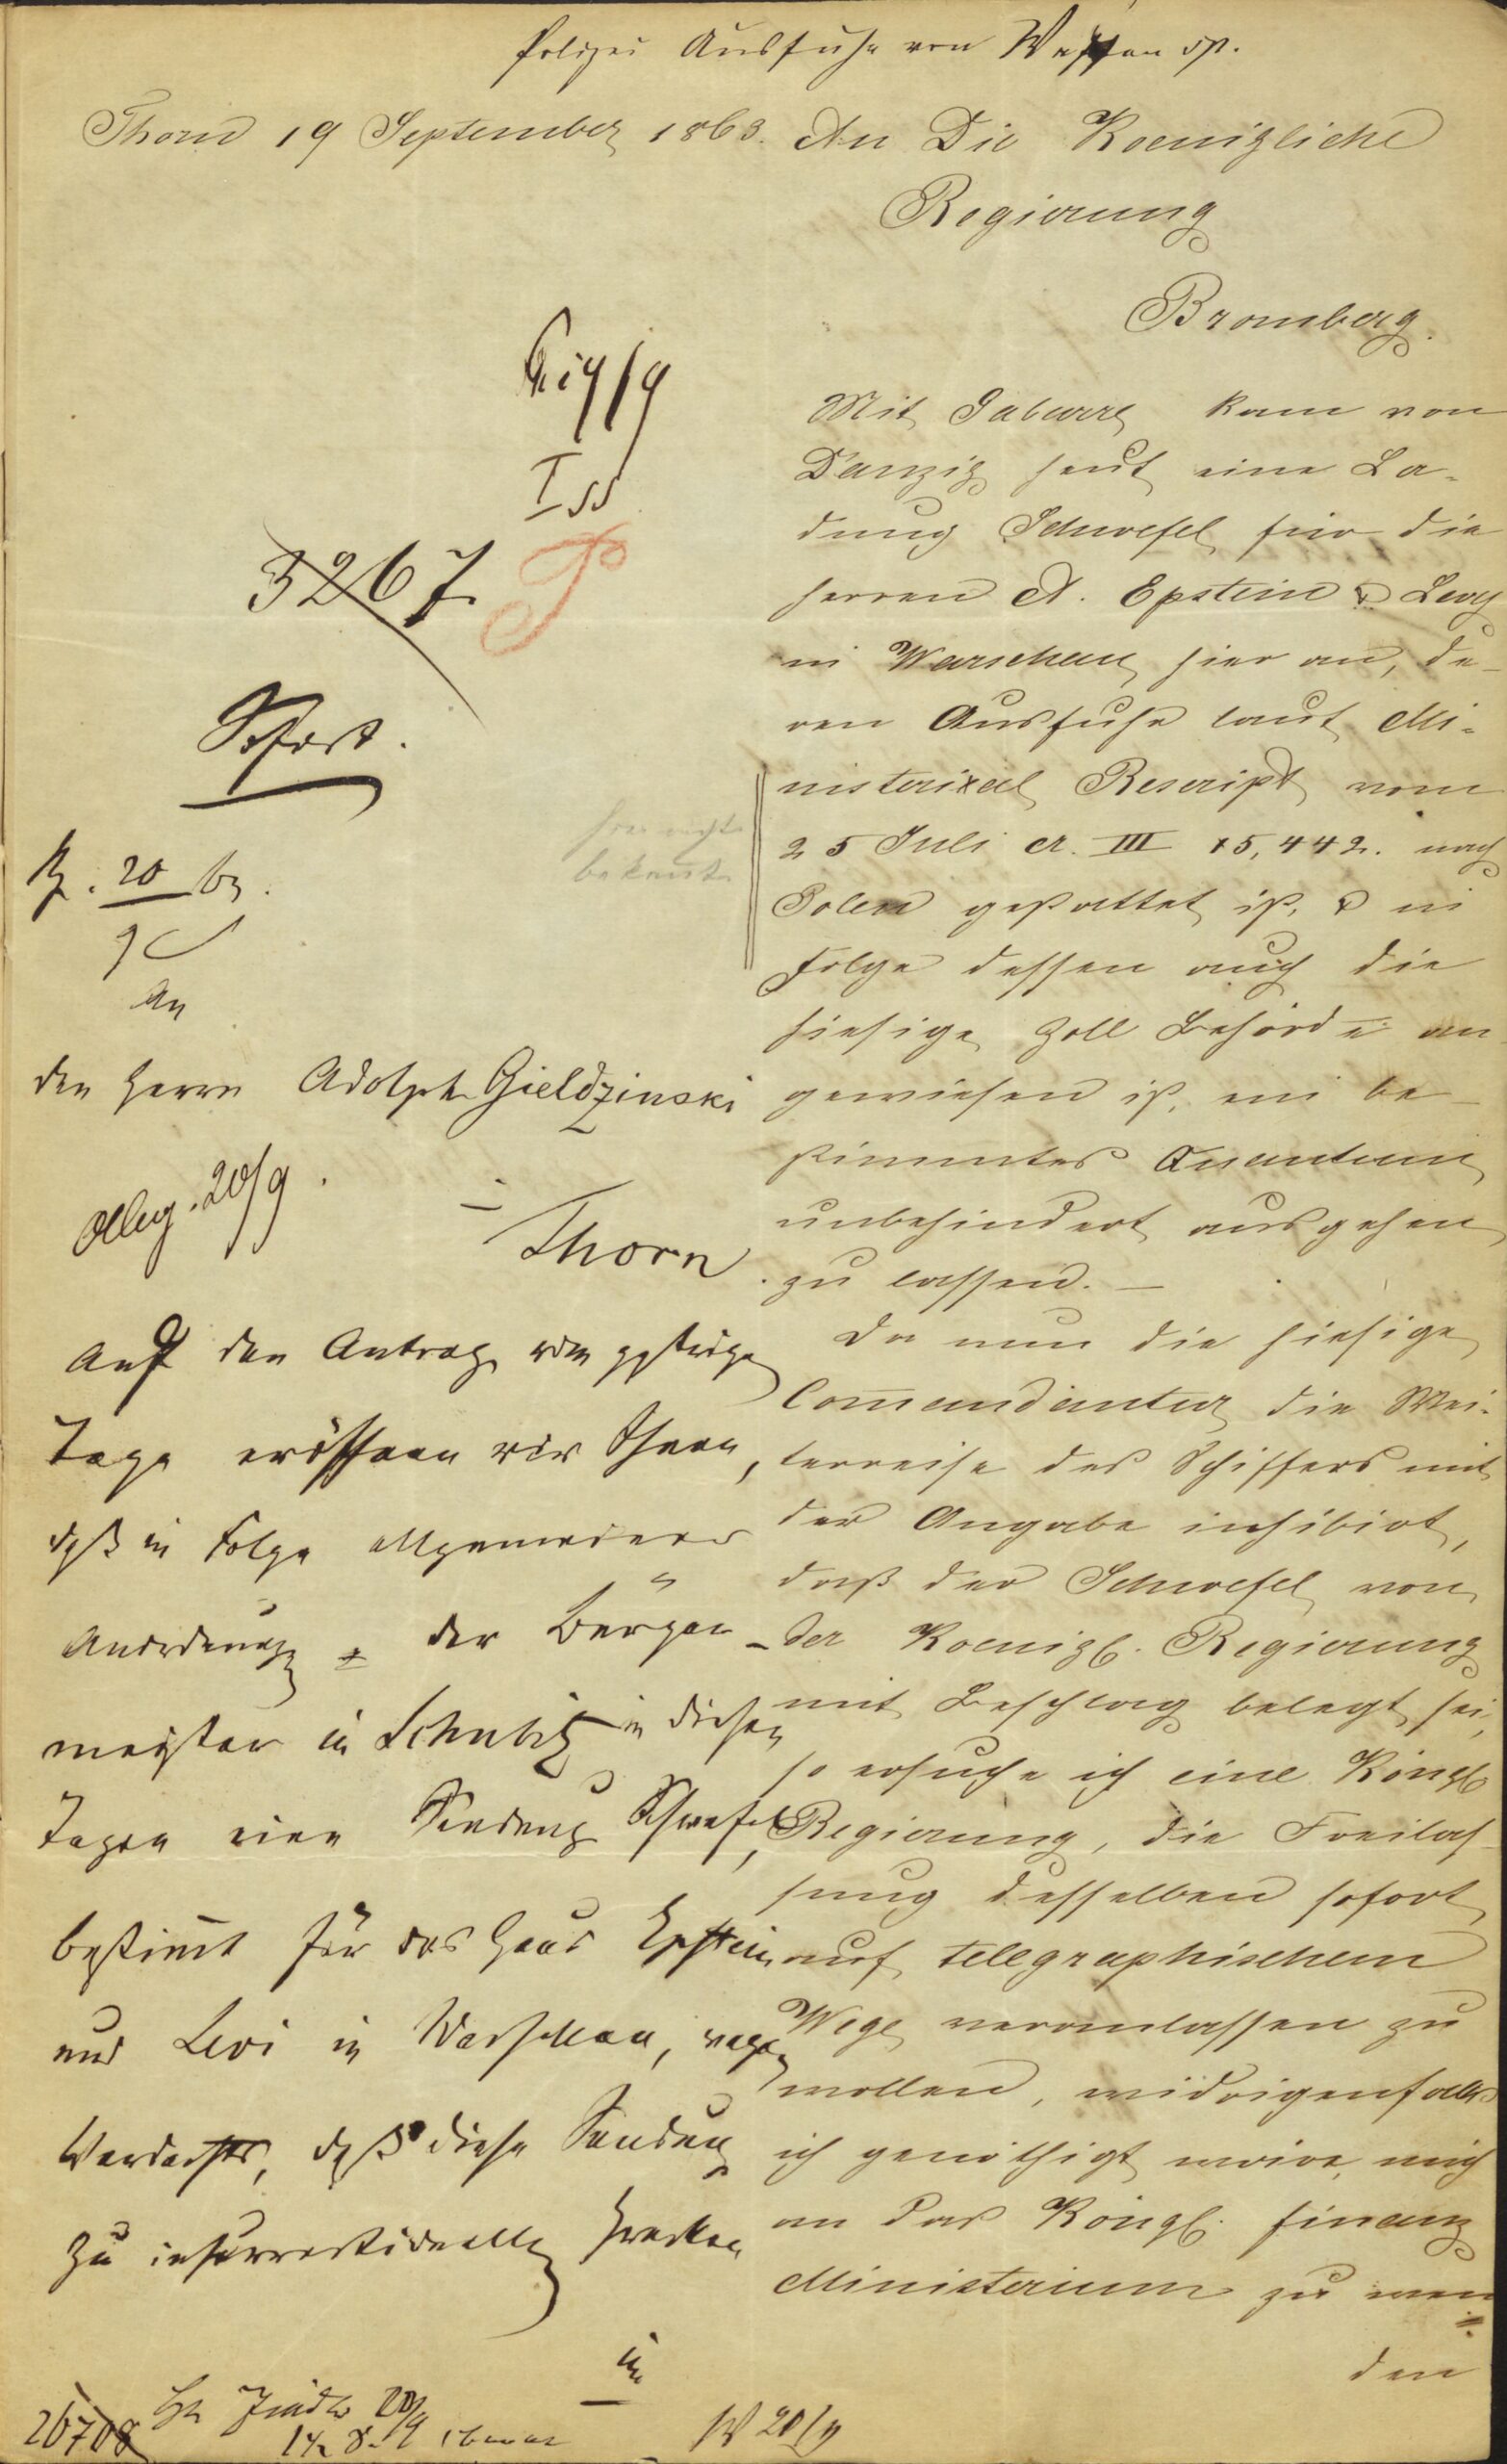 Polizei Ausfuhr von Waffen pp.
Thorn 19 September 1863. An Die Koenigliche
Regierung
Bromberg.
Mit Gabarre kam von
Danzig heut eine La-
dung Schwefel für die
Herren A. Epstein & Levy
in Warschau hier an, de-
ren Ausfuhr laut Mi-
nisterial Rescript vom
25 Juli cr. III 15,442. nach
Polen gestattet ist, & in
Folge dessen auch die
hiesige Zoll Behörde an
gewiesen ist, ein be-
stimmtes Quantum
unbehindert ausgehen
zu lassen. —
Da nun die hiesige
Commandantur die Wei-
terreise des Schiffers mit
der Angabe inhibirt,
daß der Schwefel von
der Koenigl. Regierung
mit Beschlag belegt sei,
so ersuche ich eine Köngl
Regierung, die Freilas-
sung desselben sofort
auf telegraphischem
Wege veranlassen zu
wollen, widrigenfalls
ich genöthigt wäre, mich
an das Köngl. Finanz
Ministerium zu wen
den
19/9
I
3267
Sofort.
hier nicht
bekannt
B. 20
9
An
den Herrn Adolph Gieldzinski
20/9.
in
Thorn
Auf den Antrag vom gestrigen
Tage eröffnen wir Ihnen,
daß in Folge allgemeiner
Anordnung der Bürger-
meister in Schulitz in diesen
Tagen eine Sendung Schwefel,
bestimmt für das Haus Epstein
und Levi in Warschau, wegen
Verdachts, daß diese Sendung
zu insurrectionellen Zwecken
in
26708
20/9
W 20/9